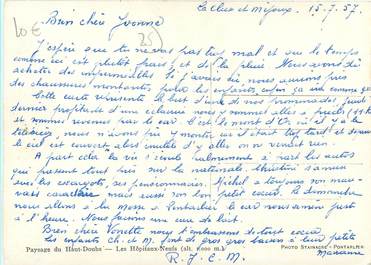 10€
25
La Cluse et Mijoux. 15.7.57.
Bien chère Yvonne
J'espère que tu ne vas pas trop mal et que le temps
comme ici est plutôt frais, et de la pluie. Nous avons dû
acheter des imperméables. Si j'avais dû nous aurions pris
des chaussures montantes pour les enfants, enfin ça va comme ça
Cette carte représente le but d'une de nos promenades, jeudi
dernier profitant d'une éclaircie nous y sommes allés à pieds
et sommes revenus par le car. C'est le mont d'Or où il y a le
nous n'avons pas pu y monter car il était trop tard et
le ciel est couvert, alors inutile d'y aller on n'y verrait rien.
A part cela la vie s'écoule calmement à part les autos
qui passent tout près sur la nationale. Christian s'amuse
avec les escargots, ses pensionnaires. Michel a toujours son
caractère mais aussi son bon petit coeur. Le dimanche
nous allons à la Messe à Pontarlier le car nous amène juste
à l'heure. Nous faisons une cure de lait.
Bien chère Vonette nous t'embrassons de tout coeur
les enfants Ch. et M. font de gros gros baisers à leur petite
Marraine
R. J. C. M.
Paysage du Haut-Doubs — Les Hôpitaux-Neufs (alt. 1000 m.)
PHOTO STAINACRE - PONTARLIER